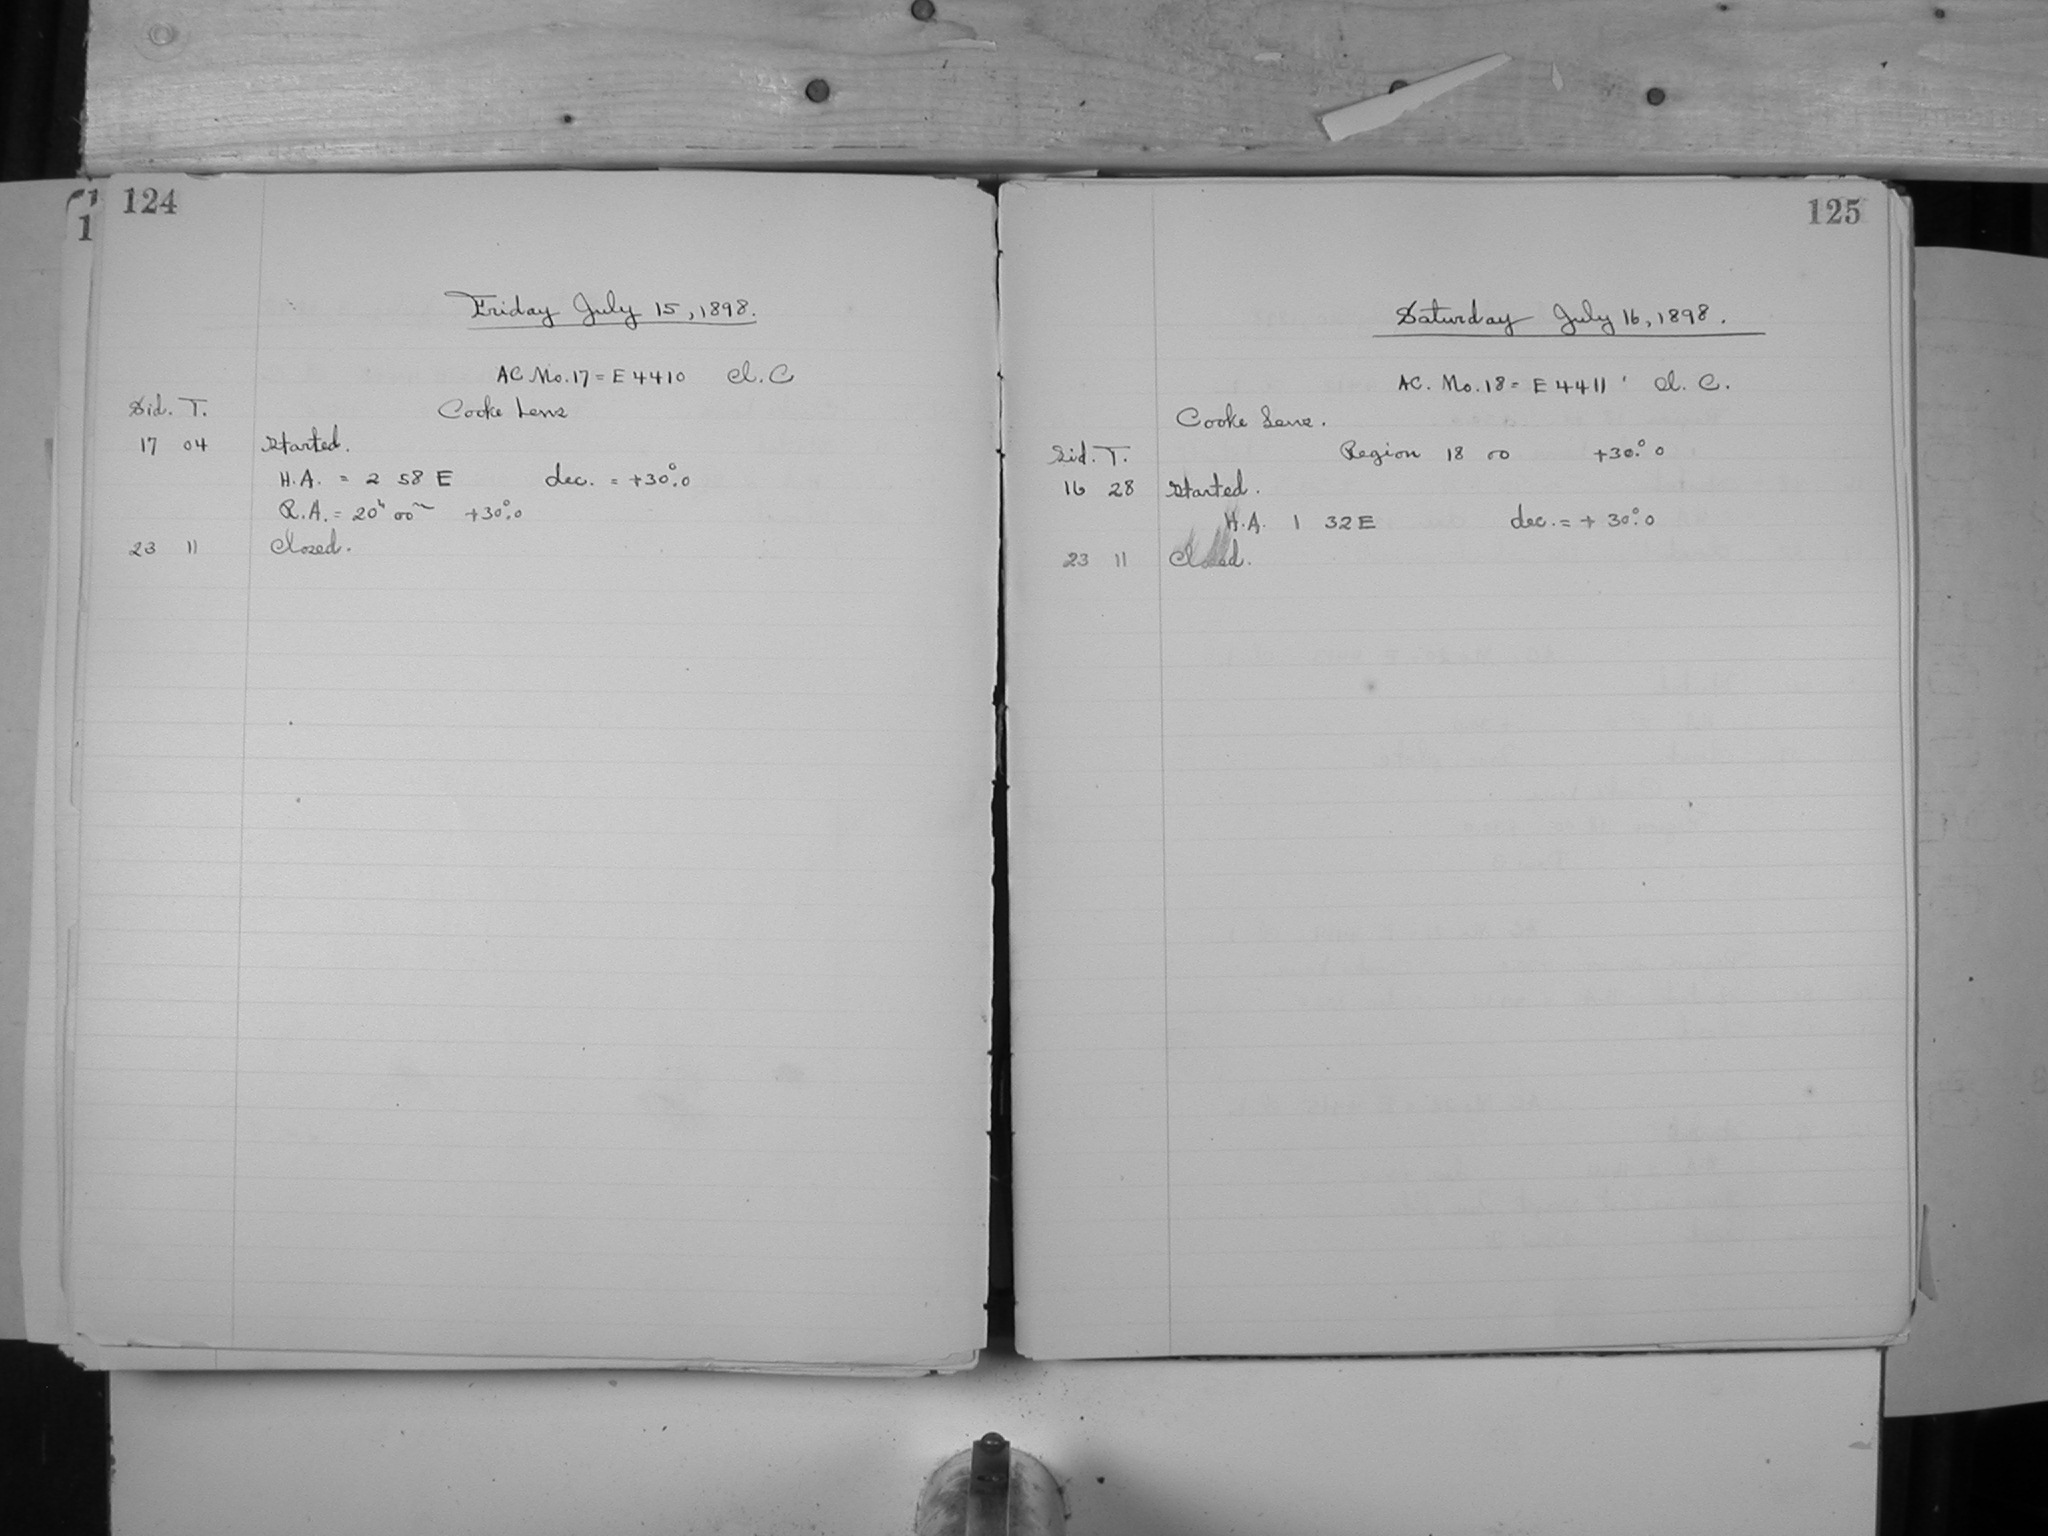 124
Friday July 15, 1898.
AC No. 17 = E 4410 Cl. C
Sid. T.
Cooke Lens
17 04 Started.
H.A. = 2 58 E dec. = +30°.0
R.A. = 20h 00m +30°.0
23 11 Closed.
125
Saturday July 16, 1898.
AC. No. 18 = E 4411 Cl. C.
Cooke Lens.
Sid. T.
Region 18 00 +30°.0
16 28 Started.
H.A. 1 32 E dec. = + 30°.0
23 11 Closed.